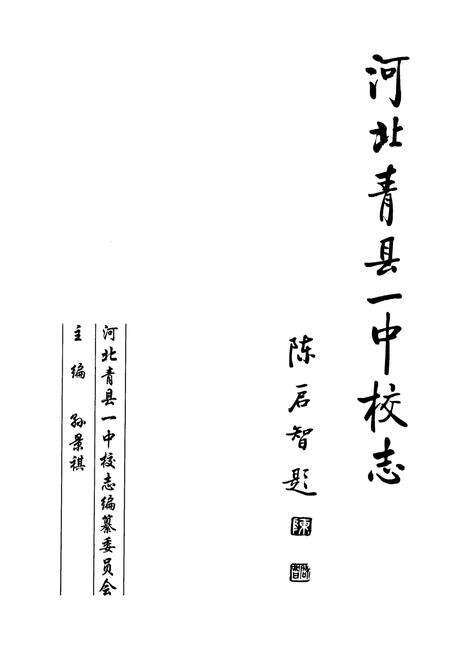 河北青县一中校志
陈启智题
陳
启智
河北青县一中校志编纂委员会
主编 孙景祺